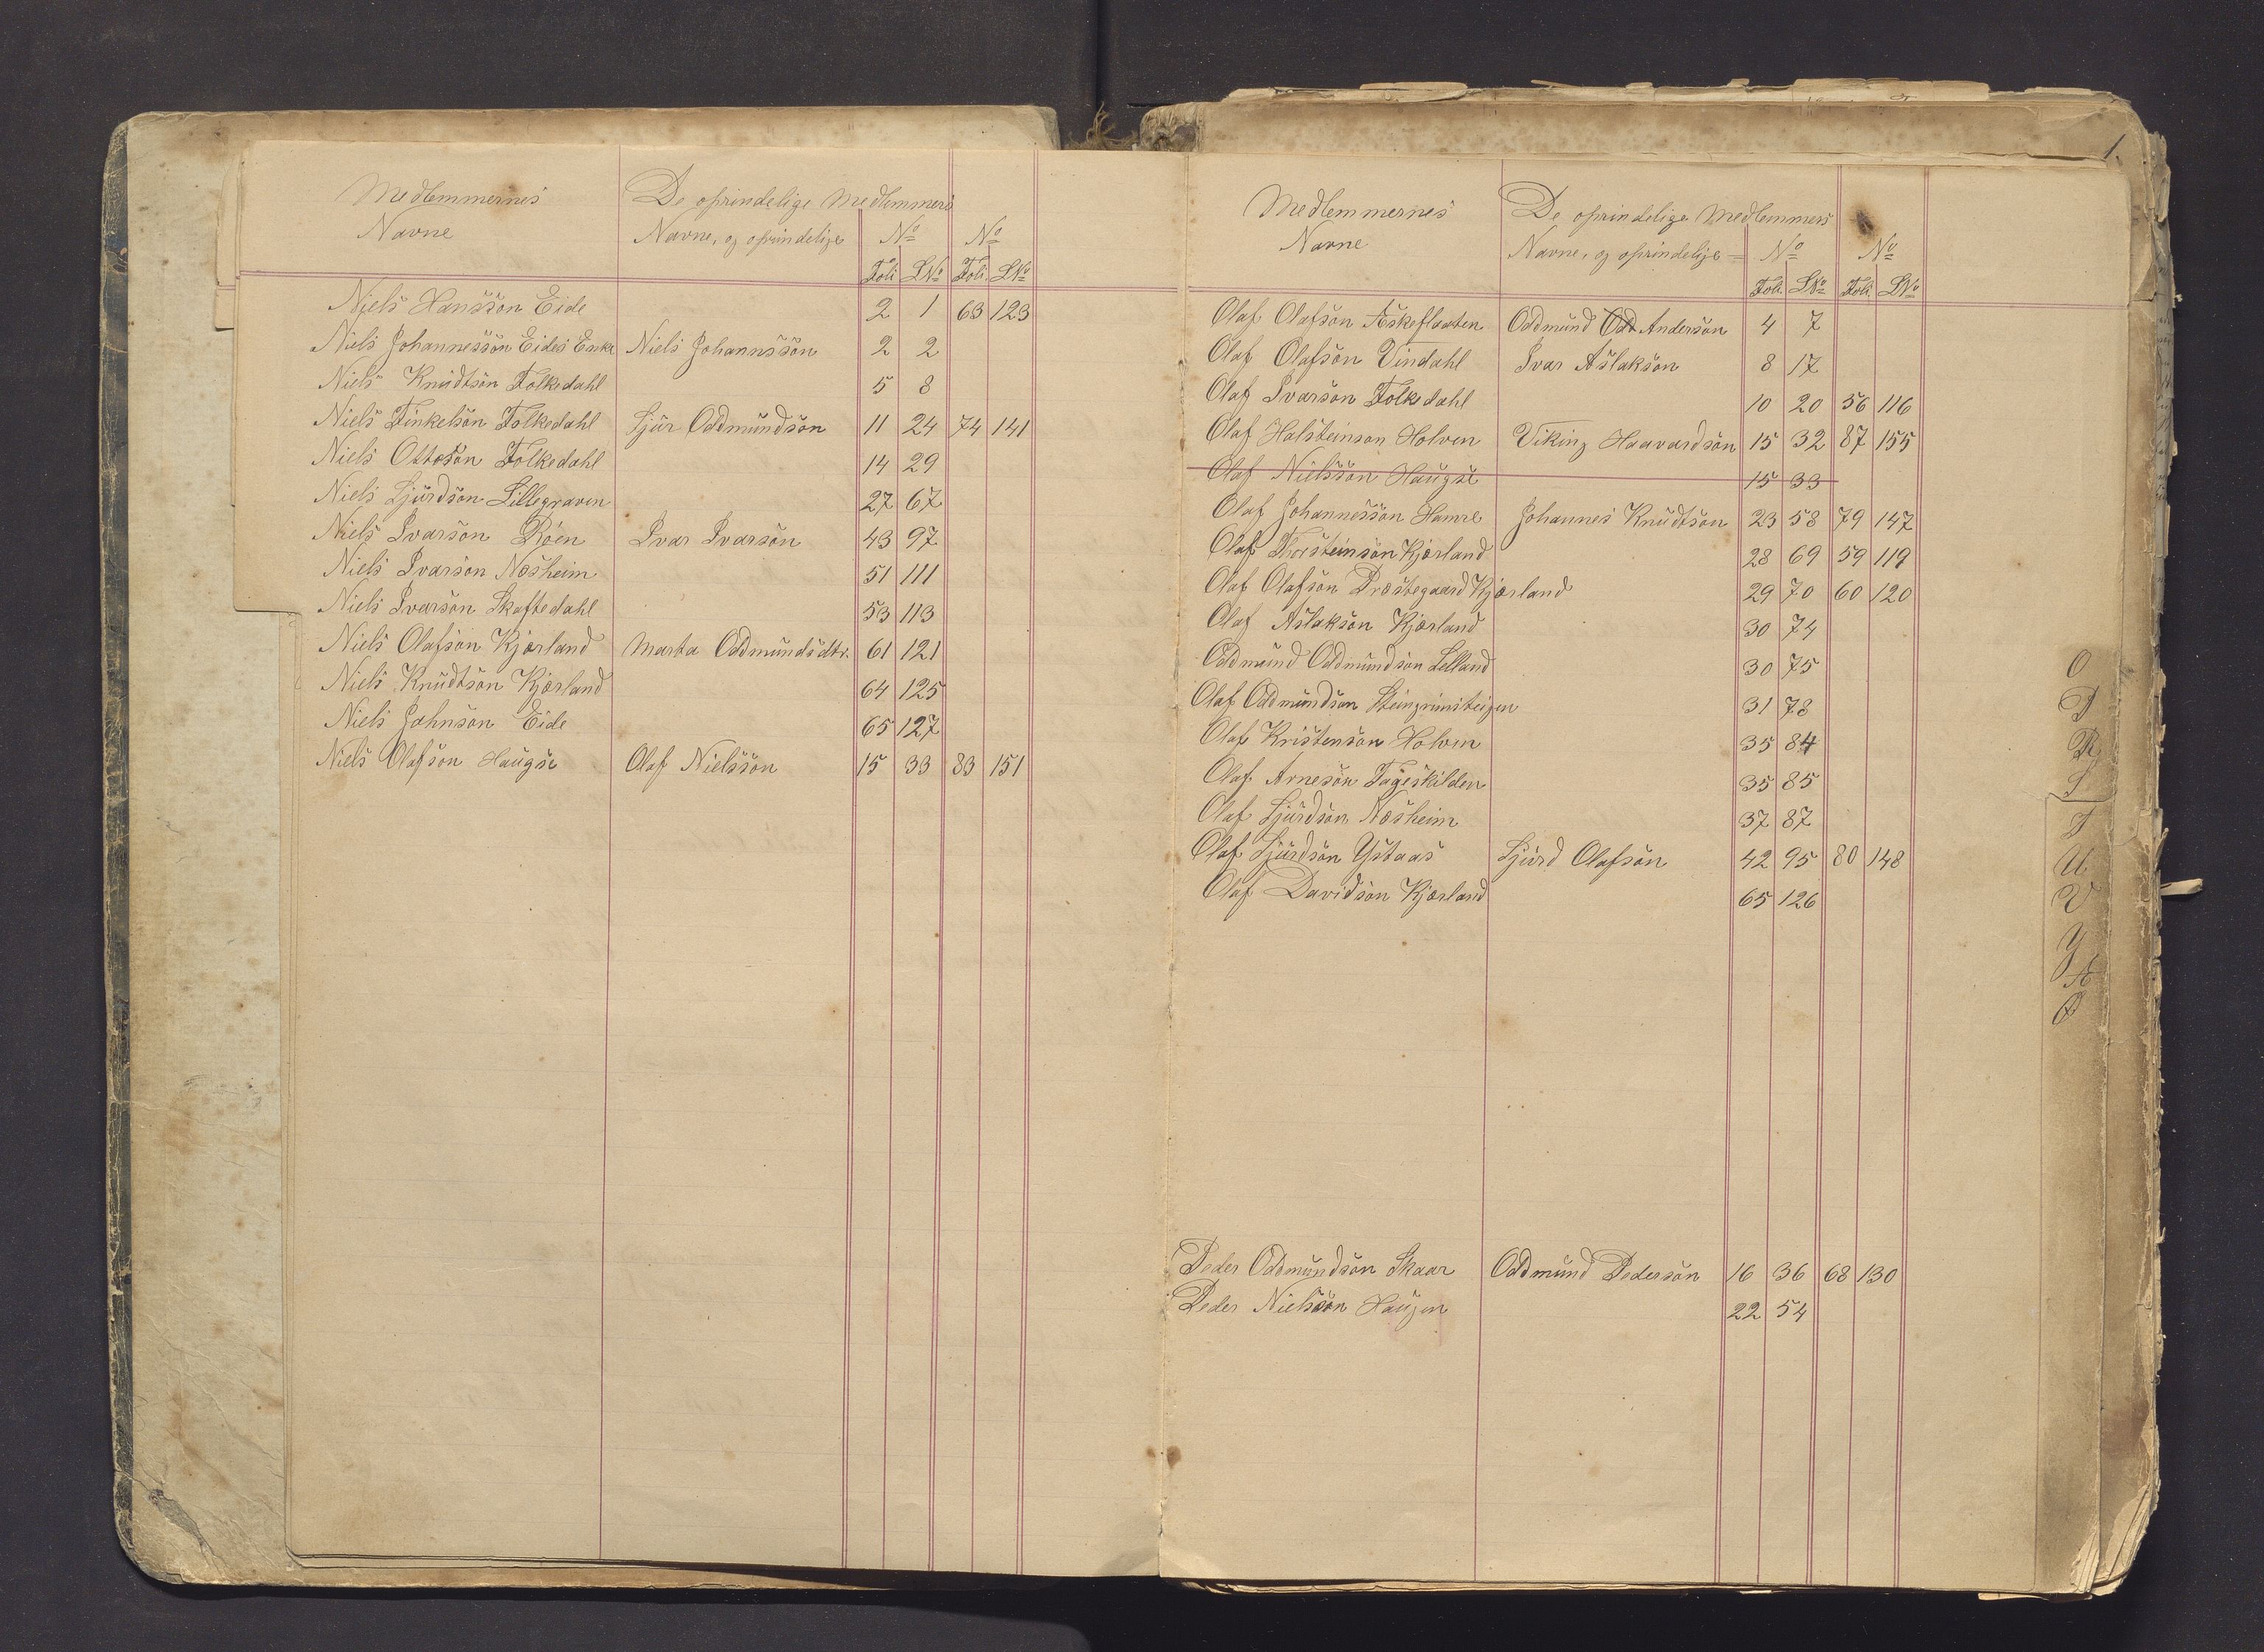 Medlemmernes De oprindelige Medlemmers
Navne Navne, og oprindelige No No
Foli LNo Foli LNo
Niels Hansson Eide 2 1 63 123
Niels Johannessön Eides Enke Niels Johannssön 2 2
Niels Knudtsön Folkedahl 5 8
Niels Finkelsön Folkedahl Sjur Oddmundsön 11 24 74 141
Niels Ottosön Folkedahl 14 29
Niels Sjurdsön Lillegraven 27 67
Niels Ivarson Röen Ivar Ivarsön 43 97
Niels Ivarson Næsheim 51 111
Niels Ivarson Skaftedahl 53 113
Niels Olafson Kjærland Marta Oddmundsdtr. 61 121
Niels Knudtsön Kjærland 64 125
Niels Johnson Eide 65 127
Niels Olafson Haugse Olaf Nielssön 15 33 83 151
1.
Medlemmernes De oprindelige Medlemmers
Navne Navne, og oprindelige = No No
Foli LNo Foli LNo
Olaf Olafsön Æskeflaaten Oddmund Odd Andersön 4 7
Olaf Olafsön Vindahl Ivar Aslaksön 8 17
Olaf Ivarsön Folkedahl 10 20 56 116
Olaf Halsteinson Holven Viking Haavardsön 15 32 87 155
Olaf Nielssön Haugse 15 33
Olaf Johannessön Hamre Johannes Knudtsön 23 58 79 147
Olaf Thorsteinsön Kjærland 28 69 59 119
Olaf Olafsön Præstegaard Kjærland 29 70 60 120
Olaf Aslaksön Kjærland 30 74
Oddmund Oddmundsön Lelland 30 75
Olaf Oddmundsön Steingrimsteigen 31 78
Olaf Kristensön Holven 35 84
Olaf Arnesön Fageskilden 35 85
Olaf Sjurdsön Næsheim 37 87
Olaf Sjurdsön Ystaas Sjurd Olafsön 42 95 80 148
Olaf Davidsön Kjærland 65 126
Peder Oddmundsön Skaar Oddmund Pedersön 16 36 68 130
Peder Nielssön Haugen 22 54
O
P
R
S
T
U
V
Y
Æ
Ø